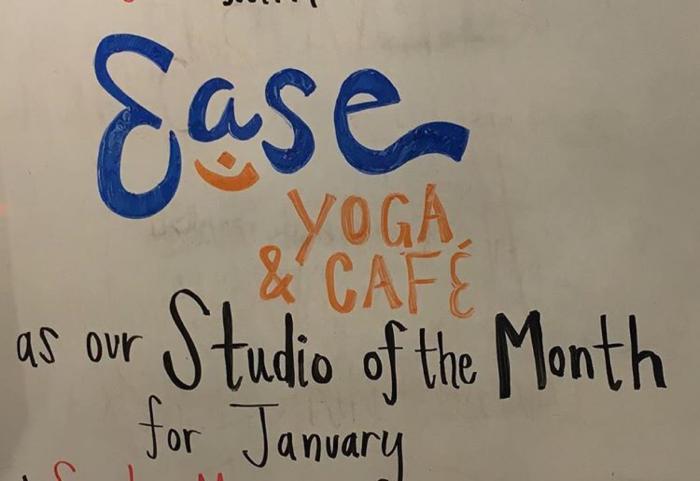 Ease
YOGA
& CAFÉ
as our Studio of the Month
for January